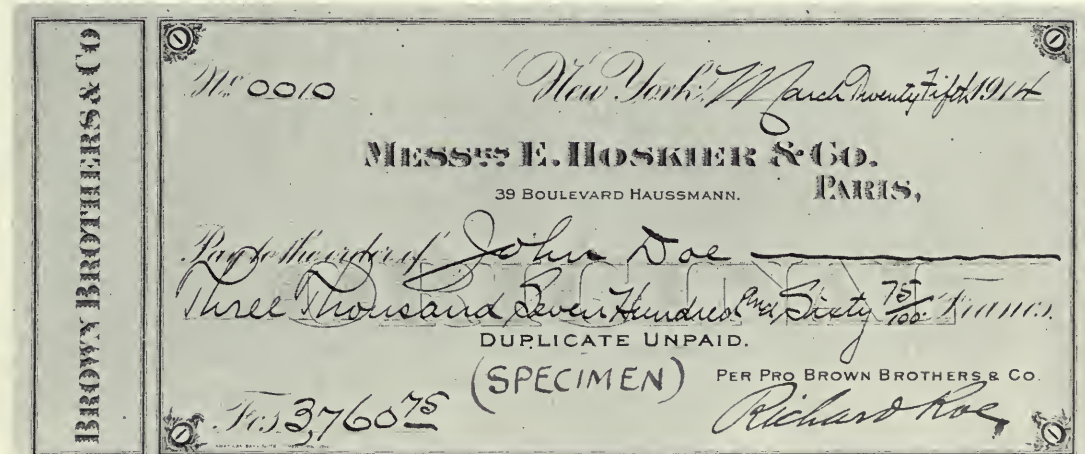 BROWN BROTHERS & CO
No. 0010 New York, March Twenty Fifth 1914
MESSRS E. HOSKIER & CO.
39 BOULEVARD HAUSSMANN. PARIS,
Pay to the order of John Doe
ORIGINAL
Three Thousand Seven Hundred and Sixty 75/100 Francs.
DUPLICATE UNPAID.
(SPECIMEN) PER PRO BROWN BROTHERS & CO.
Fcs 3,760 75 Richard Roe